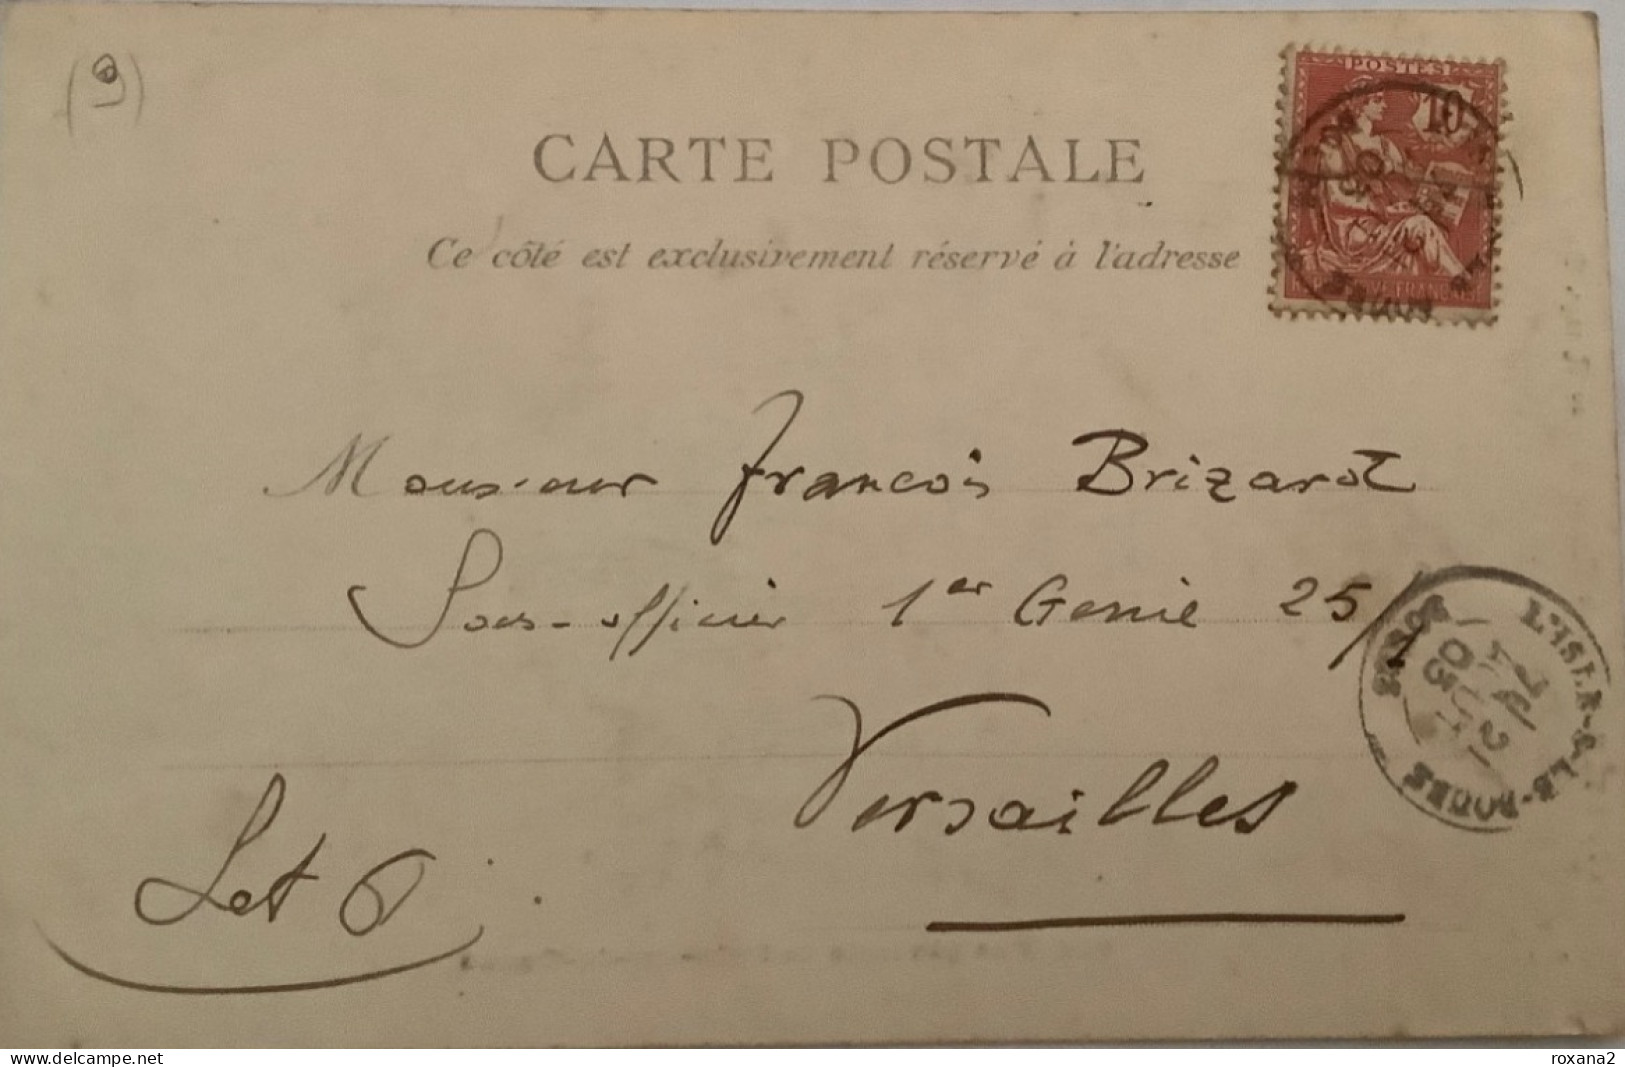 (9)
CARTE POSTALE
Ce côté est exclusivement réservé à l'adresse
POSTES
10
Monsieur François Brizarot
Sous-officier 1er Genie 25/1
Versailles
L'ISLE-S-LE-DOUBS
DOUBS
21
05
www.delcampe.net
roxana2